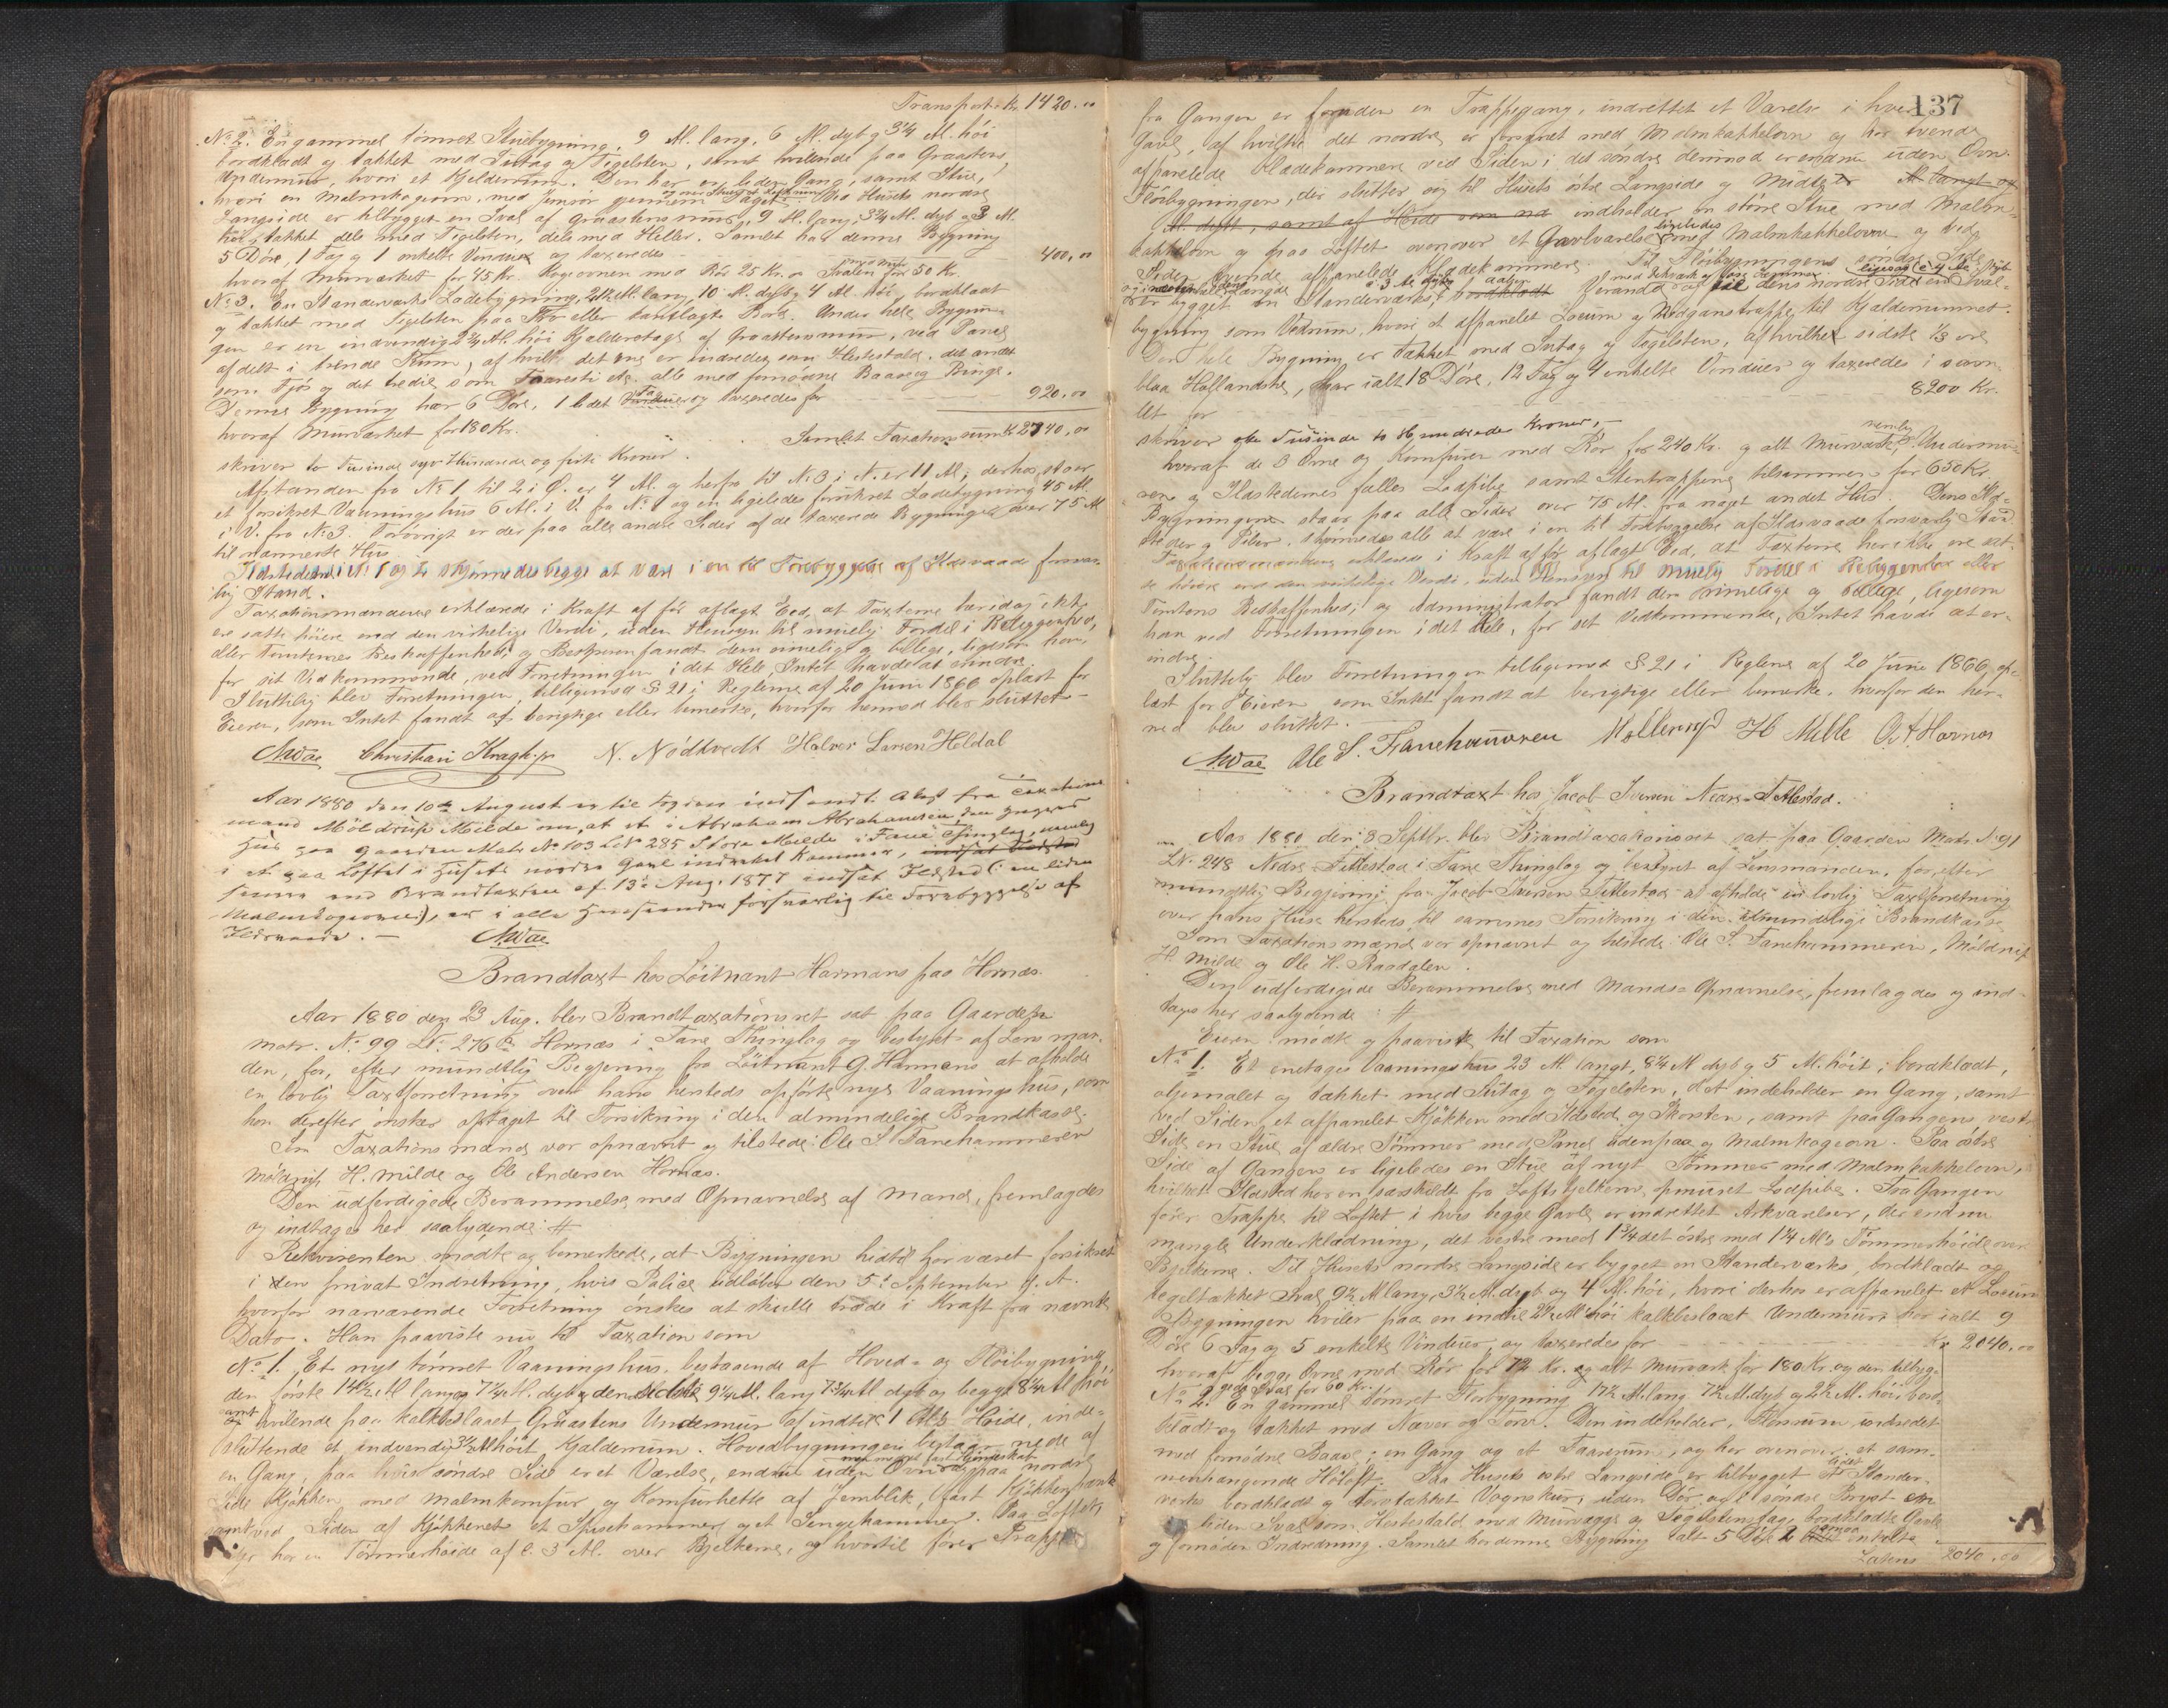 Transport Kr. 1420.00
No 2. En gammel tømret Stuebygning, 9 Al. lang, 6 Al. dyb og 3¾ Al. høi
bordklædt og tækket med Tutag og Tegelsten, samt hvilende paa Graastens
Undermuur, hvori et Kjelderrum. Den har en liden Gang, samt Stue,
hvori en Malmkogeovn, med Jernrør gjennem Taget. Ved Husets nordre
Langside er tilbygget en Sval af Graastensmuur, 9 Al. lang, 3¾ Al. dyb og 3 Al.
høi, tækket dels med Tegelsten, dels med Heller. Samlet har denne Bygning
5 Døre, 1 Fag og 1 enkelte Vinduer og taxeredes 400,00
hvoraf Murværket for 45 Kr. Kogeovnen med Rør 25 Kr. og Svalen for 50 Kr.
No 3. En Standerværks Ladebygning, 21½ Al. lang, 10 Al. dyb og 4 Al. høi, bordklædt
og tækket med Tegelsten paa eller tætlagte Bord. Under hele Bygnin-
gen er en indvendig Al. høi Kjelderetage af Graastensmuur, ved Panel
afdelt i trende Rum, af hvilke det ene er indredet som Hestestald, det andet
som Fjøs og det tredie som Faaresti etc. alle med fornødne Baase og Binge.
Denne Bygning har 6 Døre, 1 lidet Fag og taxeredes for 920,00
hvoraf Murværket for 180 Kr.
Samlet Taxationssum Kr 2740,00
skriver to Tusinde syv Hundrede og firti Kroner.
Afstanden fra No 1 til 2 i Ø. er 4 Al. og herfra til No 3 i N. er 11 Al; derhos staar
et forsikret Vaaningshus 6 Al. i V. fra No 1 og en ligeledes forsikret Ladebygning 45 Al.
i V. fra No 3. Forøvrigt er der paa alle andre Sider af de taxerede Bygninger over 75 Al.
til nærmeste Hus.
Ildstederne i No 1 og 2 skjønnedes begge at være i en til Forebyggelse af Ildsvaade forsvar-
lig Stand.
Taxationsmændene erklærede i Kraft af før aflagt Eed, at Taxterne heri dag ikke
ere satte høiere end den virkelige Værdi, uden Hensyn til muelig Fordel i Beliggenhed,
eller Tomternes Beskaffenhed; og fandt dem rimelige og billige, ligesom han,
for sit Vedkommende, ved Forretningen i det Hele, Intet havde at erindre.
Sluttelig blev Forretningen, tilligemed § 21 i Reglerne af 20 Juni 1866 oplæst for
Eieren, som Intet fandt at berigtige eller bemærke, hvorfor hermed blev sluttet
NWae Christian Kragh jr N. Nødtvedt Halvor Larsen Heldal
Aar 1880 den 10de August er tilført indsendt Attest fra Taxations
mand Møldrup Milde om, at et i Abraham Abrahamsen den yngres
Hus paa Gaarden Matr No 103 LNo 285 Store Milde i Fane Thinglag, nemlig
i et paa Loftet i Husets nordre Gavl indrettet Kammer,
siden Brandtaxten af 13de Aug. 1877 indsat Ildsted (: en liden
Malmkogeovn:), er i alle Henseender forsvarlig til Forebyggelse af
Ildsvaade. —
NWae
Brandtaxt hos Løitnant Harmens paa Hornæs.
Aar 1880 den 23 Aug. blev Brandtaxationsret sat paa Gaarden
Matr. No 99 LNo 276 Hornæs i Fane Thinglag og bestyret af Lensman-
den, for, efter mundtlig Begjering fra Løitnant G. Harmens at afholde
en lovlig Taxtforretning over hans hersteds opførte nye Vaaningshus, som
han derefter ønsker optaget til Forsikring i den almindelige Brandkasse.
Som Taxationsmænd var opnævnt og tilstede: Ole S. Fanehammeren
Møldrup H. Milde og Ole Andersen Hornæs.
Den udferdigede Berammelse med Opnævnelse af Mænd, fremlagdes
og indtages her saalydende: #
Rekvirenten mødte og bemærkede, at Bygningen hidtil har været forsikret
i den privat Indretning, hvis Police udløber den 5te September d. A.
hvorfor nærværende Forretning ønskes at skulle træde i Kraft fra nævnte
Dato. Han paaviste nu til Taxation som
No 1. Et nyt tømret Vaaningshus, bestaaende af Hoved- og Fløibygning
den første 14½ Al lang og 7¼ Al. dyb og den sidste 9¼ Al. lang 7¾ Al dyb og begge 8¼ Al høi
samt hvilende paa kalkbeslaaet Graastens Undermur af indtil 1 Al's Høide, inde-
sluttende et, indvendig 3½ Al høit, Kjelderrum. Hovedbygningen bestaar nede af
en Gang, paa hvis søndre Side er et Værelse, endnu uden Ovn og paa nordre
Side Kjøkken, med Malmkomfur og Komfurhette af Jernblik, fast Kjøkkenbænk
samt ved Siden af Kjøkkenet et Spisekammer og et Sengekammer. Paa Loftet
der har en Tømmerhøide af c. 3 Al. over Bjelkerne, og hvortil fører Trappe
137
fra Gangen er foruden en Trappegang, indrettet et Værelse i hver
Gavl, af hvilke det nordre er forsynet med Malmkakkelovn og har tvende
afpanelede Klædekammere ved Siden; det søndre derimod er endnu uden Ovn.
Fløibygningen, der slutter sig til Husets østre Langside og Midte er Al. langt og
Al. dybt, samt af Høide som indholder en større Stue med Malm-
kakkelovn og paa Loftet ovenover et Gavlværelse ligeledes med Malmkakkelovn og ved
Siden tvende afpanelede Klædekammere. Til Fløibygningens søndre Side
er bygget en Standerværks Veranda og til dens nordre Side en Sval-
bygning som Vedrum, hvori et afpanelet Locum og Nedgangstrappe til Kjelderrummet.
Den hele Bygning er tækket med Sutag og Tegelsten, af hvilke sidste ⅓ ere
blaa Hollandske, har ialt 18 Døre, 12 Fag og 4 enkelte Vinduer og taxeredes i sam-
let for 8200 Kr.
skriver otte Tusinde to Hundrede Kroner,—
hvoraf de 3 Ovne og Komfuren med Rør for 240 Kr. og alt Murværk, nemlig Undermu-
ren og Ildstedernes fælles Lodpibe samt Stentrapperne tilsammen for 650 Kr.
Bygningerne staar paa alle Sider over 75 Al. fra noget andet Hus. Dens Ild-
steder og Piber skjønnedes alle at være i en til Forebyggelse af Ildsvaade forsvarlig Stand
Taxationsmændene erklærede i Kraft af før aflagt Eed, at Taxterne her ikke ere sat-
te høiere end den virkelige Værdi, uden Hensyn til muelig Fordel i Beliggenhed eller
Tomtens Beskaffenhed; og Administrator fandt dem rimelige og billige, ligesom
han ved Forretningen i det Hele, for sit Vedkommende, Intet havde at er-
indre.
Sluttelig blev Forretningen tilligemed § 21 i Reglerne af 20 Juni 1866, op-
læst for Eieren som Intet fandt at berigtige eller bemærke, hvorfor den her-
med blev sluttet.
NWae Ole S. Fanehammeren Møldrup H Milde O. A. Hornæs
Brandtaxt hos Jacob Iversen Nedre-Tittlestad.
Aar 1880 den 8 Septbr. blev Brandtaxationsret sat paa Gaarden Matr. No 91
LNo 248 Nedre-Titlestad i Fane Thinglag og bestyret af Lensmanden, for, efter
mundtlig Begjering fra Jacob Iversen Titlestad at afholde en lovlig Taxtforretning
over hans Huse hersteds, til sammes Forsikring i den almindelige Brandkasse.
Som Taxationsmænd var opnævnt og tilstede: Ole S. Fanehammeren, Møldrup
H. Milde og Ole H. Raadalen.
Den udferdigede Berammelse med Mands-Opnævnelse, fremlagdes og ind-
tages her saalydende: #
Eieren mødte og paaviste til Taxation som
No 1. Et enetages Vaaningshus 23 Al. langt, 8¼ Al dyb og 5 Al. høit; bordklædt,
oljemalet og tækket med Sutag og Tegelsten, det indeholder en Gang, samt
ved Siden et afpanelet Kjøkken med Ildsted og Skorsten, samt paa Gangens vestre
Side en Stue af ældre Tømmer med Panel udenpaa og Malmkogeovn. Paa østre
Side af Gangen er ligeledes en Stue af nyt Tømmer med Malmkakkelovn,
hvilket Ildsted har en særskildt fra Loftsbjelkerne opmuret Lodpibe. Fra Gangen
fører Trappe til Loftet i hvis begge Gavle er indrettet Arkværelser, der endnu
mangle Underklædning, det vestre med 1¾ det østre med 1¼ Al's Tømmerhøide over
Bjelkerne. Til Husets nordre Langside er bygget en Standerværks, bordklædt og
tegeltækket Sval 9½ Al lang, 3½ Al. dyb og 4 Al. høi, hvori derhos er afpanelet et Locum
Bygningen hviler paa en indtil 2½ Al høi kalkbeslaaet Undermur, har ialt 9
Døre 6 Fag og 5 enkelte Vinduer, og taxeredes for Kr. 2040.00
hvoraf begge Ovne med Rør for 72 Kr. og alt Murværk for 180 Kr. og den tilbyg-
gede Sval for 60 Kr.
No 2. En gammel tømret Florbygning 17½ Al. lang 7½ Al. dyb og 2½ Al. høi bord-
klædt og tækket med Næver og Torv. Den indeholder, Florrum indredet
med fornødne Baase; en Gang og et Faarerum, og har ovenover et sam-
menhængende Høloft. Paa Husets østre Langside er tilbygget et lidet Stander-
verks bordklædt og torvtækket Vognskur, uden Dør og i søndre Bryst en
liden Sval som Hestestald med Murvægge og Tegelstenstag, bordklædte Gavle
og fornøden Indredning. Samlet har denne Bygning ialt 5 Døre enkelte
Latus 2040.00